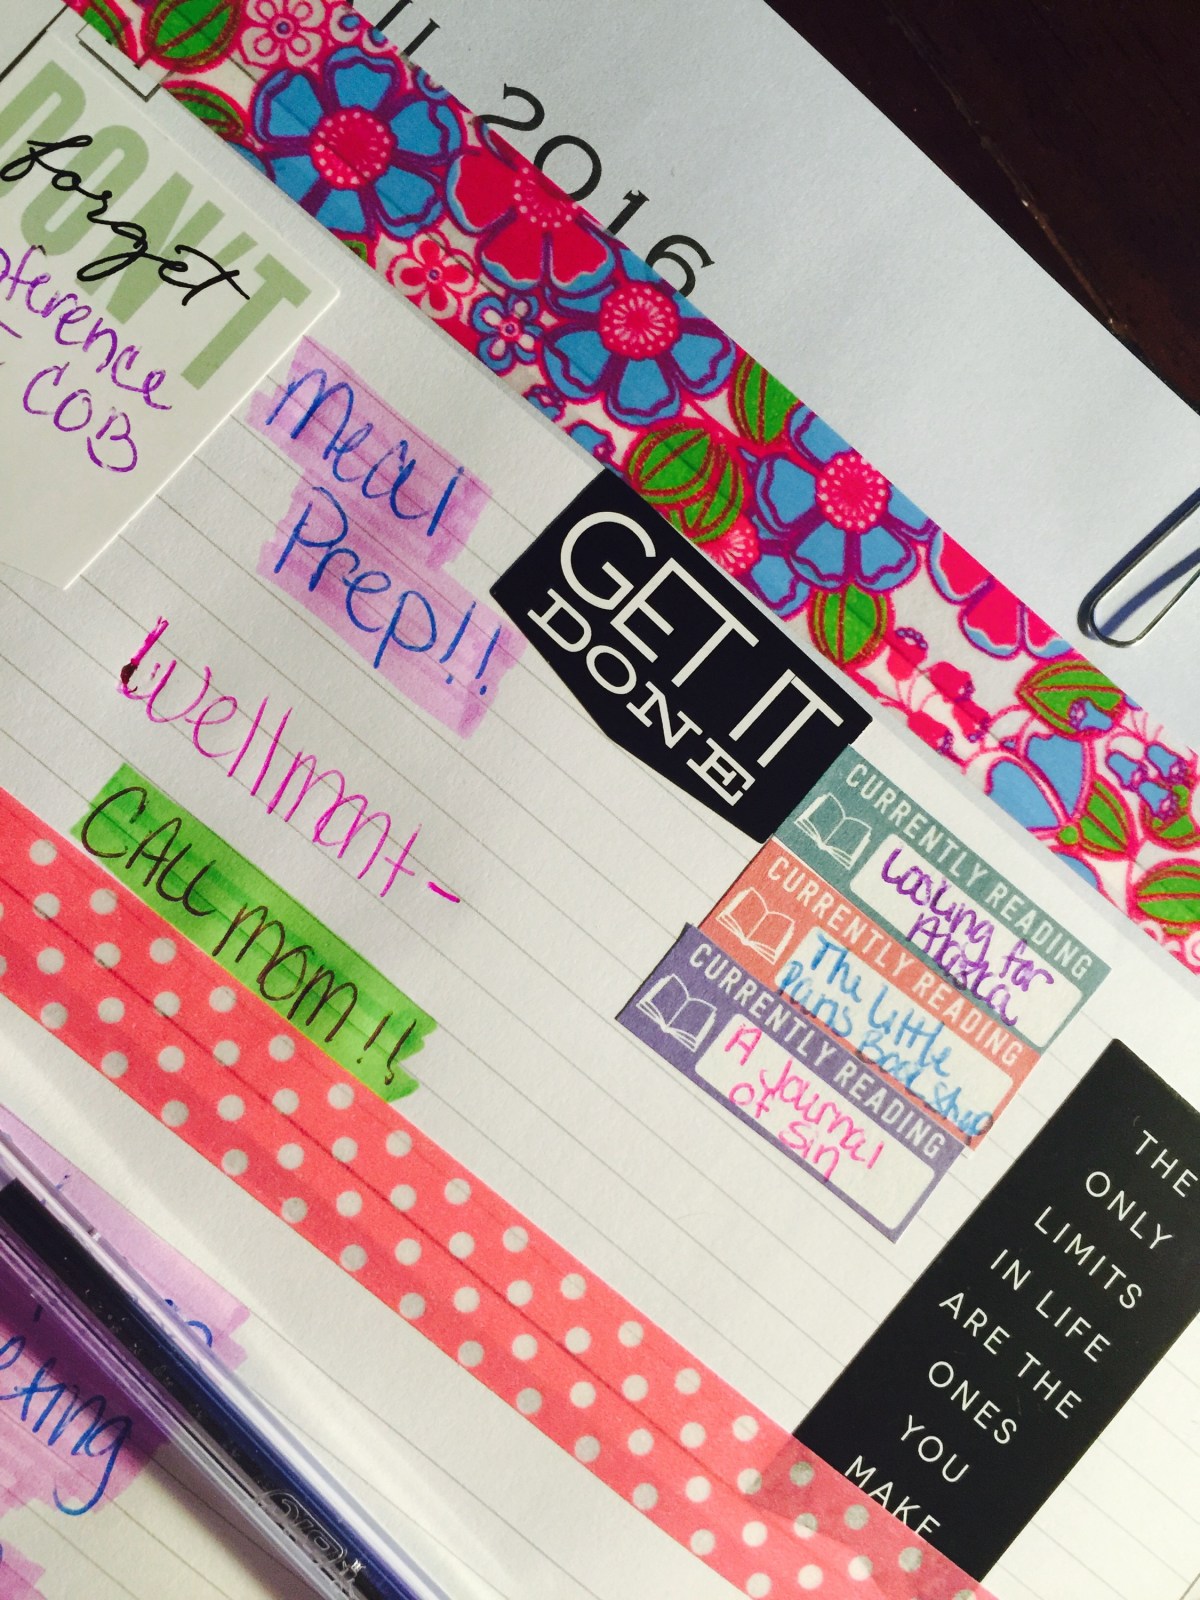 2016
DON'T
forget
COB
Meal
Prep!!
Wellmont-
CALL MOM!!
GET IT
DONE
CURRENTLY READING
Looking for
Alaska
CURRENTLY READING
The Little
Paris
Book Shop
CURRENTLY READING
A Journal
of
Sin
THE
ONLY
LIMITS
IN LIFE
ARE THE
ONES
YOU
MAKE